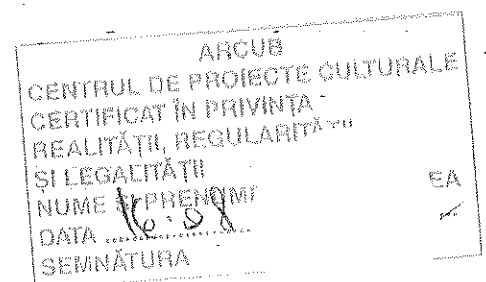 ARCUB
CENTRUL DE PROIECTE CULTURALE
CERTIFICAT ÎN PRIVINȚA
REALITĂȚII, REGULARITĂȚII
ȘI LEGALITĂȚII
NUME ȘI PRENUME EA
DATA 16.08
SEMNĂTURA